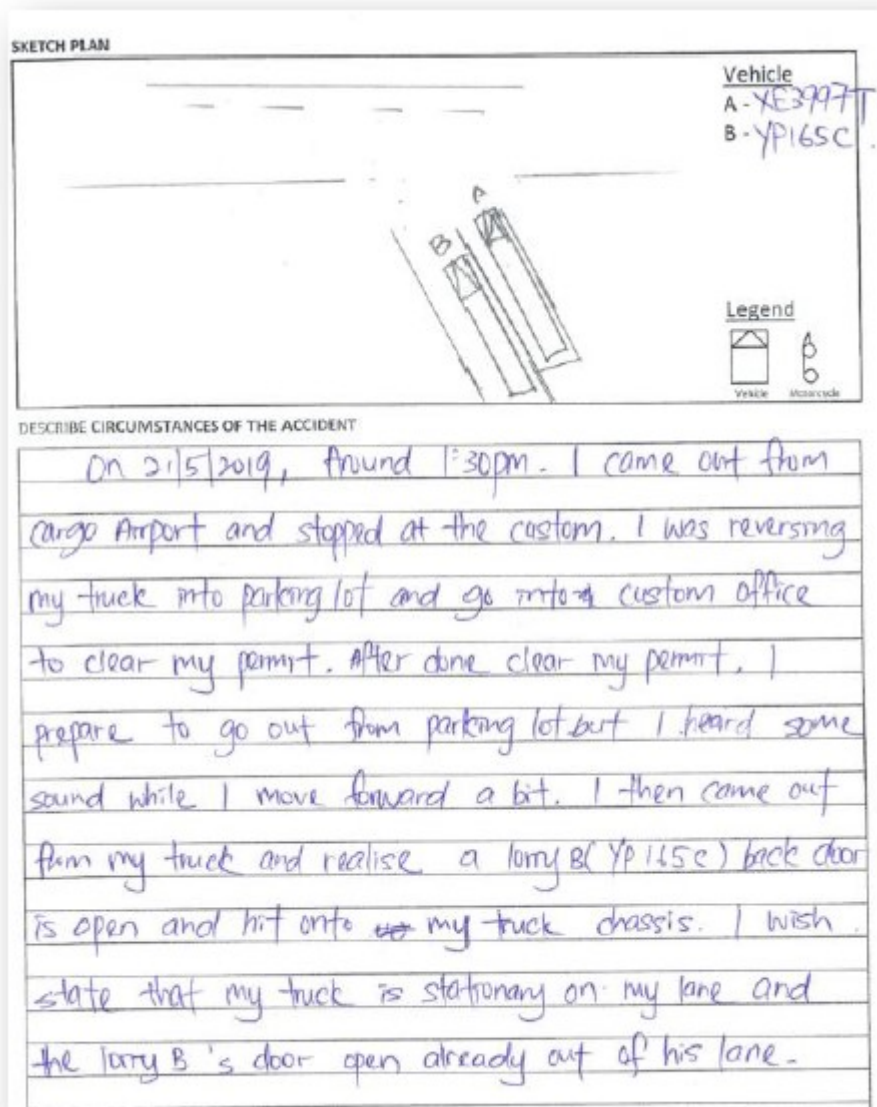 SKETCH PLAN
Vehicle
A - XE3997T
B - YP165C.
A
B
Legend
Vehicle Motorcycle
DESCRIBE CIRCUMSTANCES OF THE ACCIDENT
On 21/5/2019, Around 1:30pm. I came out from
cargo Airport and stopped at the custom. I was reversing
my truck into parking lot and go into custom office
to clear my permit. After done clear my permit. I
prepare to go out from parking lot but I heard some
sound while I move forward a bit. I then came out
from my truck and realise a lorry B( YP165C) back door
is open and hit onto my truck chassis. I wish
state that my truck is stationary on my lane and
the lorry B's door open already out of his lane.